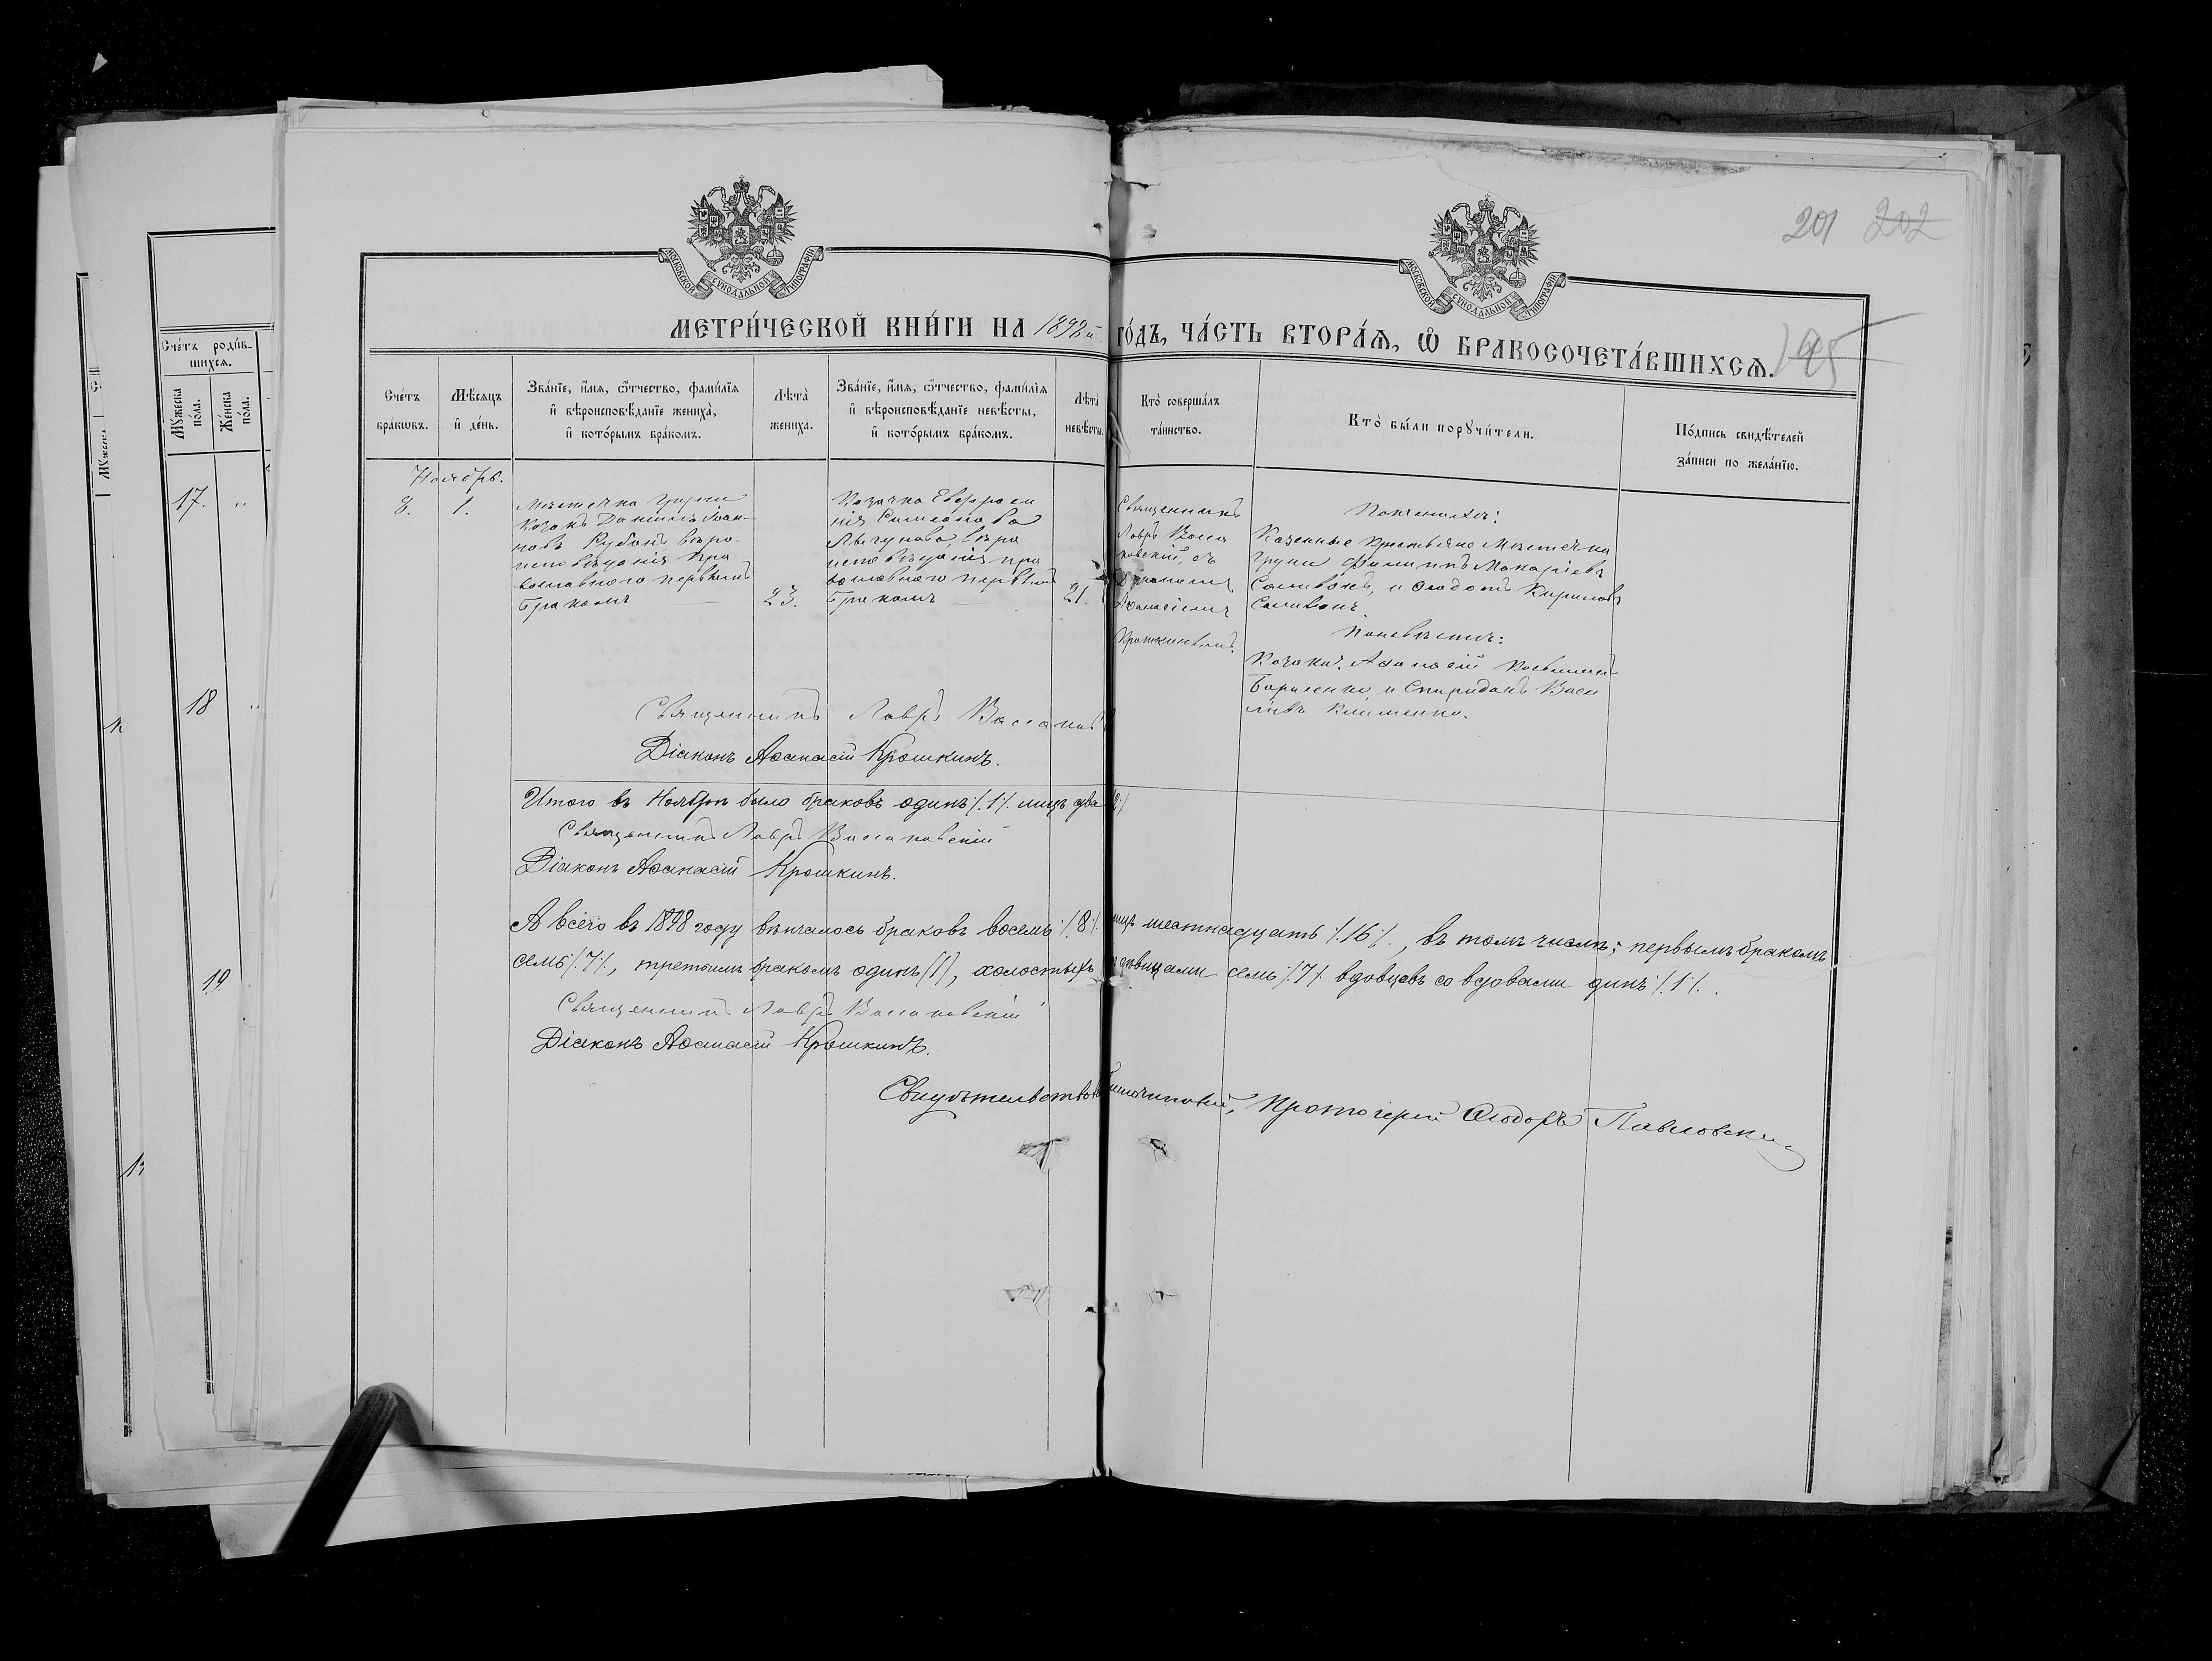 201 202
195
МОСКОВСКОЙ СѴНОДАЛЬНОЙ ТИПОГРАФІИ
МОСКОВСКОЙ СѴНОДАЛЬНОЙ ТИПОГРАФІИ
МЕТРИ́ЧЕСКОЙ КНИ́ГИ НА 1898й ГО́ДЪ, ЧА́СТЬ ВТОРА́Ѧ, Ѽ БРАКОСОЧЕТА́ВШИХСѦ.
Сче́тъ бра́кѡвъ.
Мѣ́сѧцъ и҆ де́нь.
Зва́нїе, и҆́мѧ, ѻ҆́тчество, фами́лїѧ
и҆ вѣроисповѣ́данїе жениха̀,
и҆ кото́рымъ бра́комъ.
Лѣта̀ жениха̀.
Зва́нїе, и҆́мѧ, ѻ҆́тчество, фами́лїѧ
и҆ вѣроисповѣ́данїе невѣ́сты,
и҆ кото́рымъ бра́комъ.
Лѣта̀ невѣ́сты.
Кто̀ соверша́лъ
та́инство.
Кто̀ бы́ли порꙋчи́тели.
По́дпись свидѣ́телей
за́писи по жела́нїю.
Ноябрь.
8. 1.
Мѣстечка Груни
Козакъ Даніилъ Іоан-
новъ Кубакъ вѣро-
исповѣданія пра
вославнаго первымъ
бракомъ
23.
Козачка Евфроси
нія Симеонова
вѣро
исповѣданія пра
вославнаго первымъ
бракомъ
21.
Священникъ
Лавръ Васса
новскій, съ
Діакономъ
Аѳанасіемъ
Крошкинымъ.
По женихѣ:
Казенные крестьяне Мѣстечка
Груни Филиппъ Макаріевъ
и Ѳеодотъ Кириловъ
По невѣстѣ:
Козаки: Аѳанасій
и Спиридонъ Васи
ліевъ Клименко.
Священникъ Лавръ Вассановскій
Діаконъ Аѳанасій Крошкинъ.
Итого въ Ноябрѣ было браковъ одинъ /.1/. лицъ два /2/.
Священникъ Лавръ Вассановскій
Діаконъ Аѳанасій Крошкинъ.
А всего въ 1898 году вѣнчалось браковъ восемь /.8/. лицъ шестнадцать /.16/., въ томъ числѣ: первымъ бракомъ
семь /.7/., третьимъ бракомъ одинъ /1/, холостыхъ съ дѣвицами семь /.7/. вдовцевъ со вдовами одинъ /.1/.
Священникъ Лавръ Вассановскій
Діаконъ Аѳанасій Крошкинъ.
Свидѣтельствовалъ Благочинный, Протоіерей Ѳеодоръ Павловскій
Сче́тъ роди́в-
шихсѧ.
Мꙋ́жеска по́ла.
Же́нска по́ла.
17. "
18 "
19.